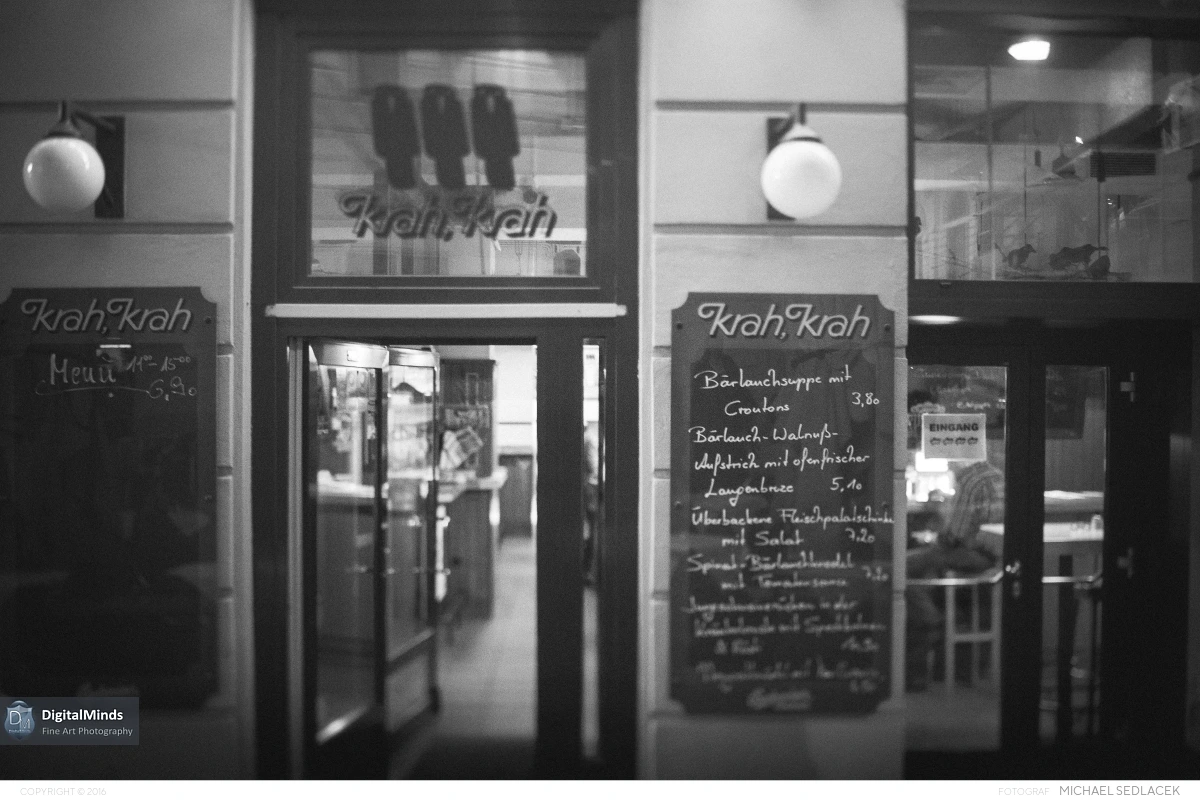 Krah, Krah
Krah, Krah
Menü 11⁰⁰-15⁰⁰
6,90
Krah, Krah
Bärlauchsuppe mit
Croutons 3,80
Bärlauch-Walnuß-
Aufstrich mit ofenfrischer
Laugenbreze 5,10
Überbackene Fleischpalatschinke
mit Salat 7,20
Spinat-Bärlauchknödel
mit Tomatensauce
EINGANG
DM
DigitalMinds
Fine Art Photography
COPYRIGHT © 2016
FOTOGRAF MICHAEL SEDLACEK